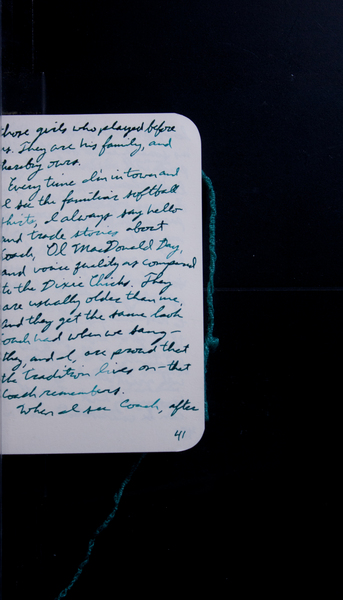 those girls who played before
us. They are his family, and
thereby ours.
Every time I'm in town and
I see the familiar softball
shirts, I always say hello
and trade stories about
Coach, Ol MacDonald Day,
and voice facility as compared
to the Dixie Chicks. They
are usually older than me,
and they get the same look
Coach had when we sang—
they, and I, are proud that
the tradition lives on—that
Coach remembers.
When I see Coach, after
41